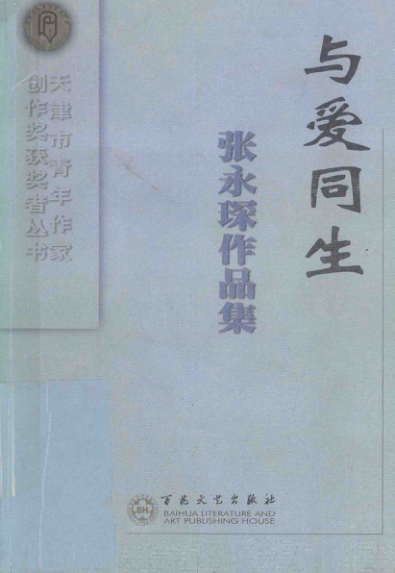 与爱同生
张永琛作品集
天津市青年作家
创作奖获奖者丛书
百花文艺出版社
BAIHUA LITERATURE AND
ART PUBLISHING HOUSE